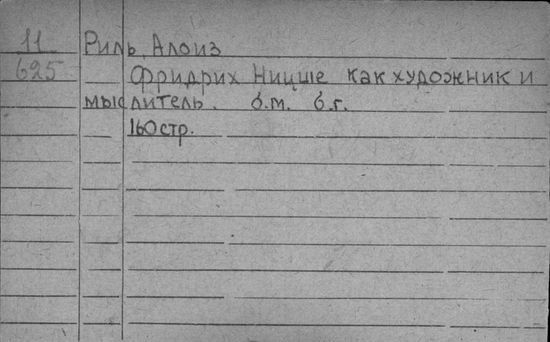 11 Риль, Алоиз
625 Фридрих Ницше как художник и
мыслитель. б.м. б.г.
160 стр.